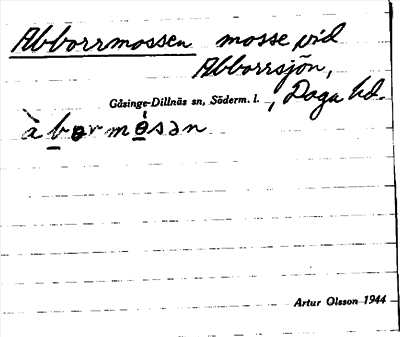 Abborrmossen mosse vid
Abborrsjön,
Gåsinge-Dillnäs sn, Söderm. l. , Daga hd.
àbərmósən
Artur Olsson 1944